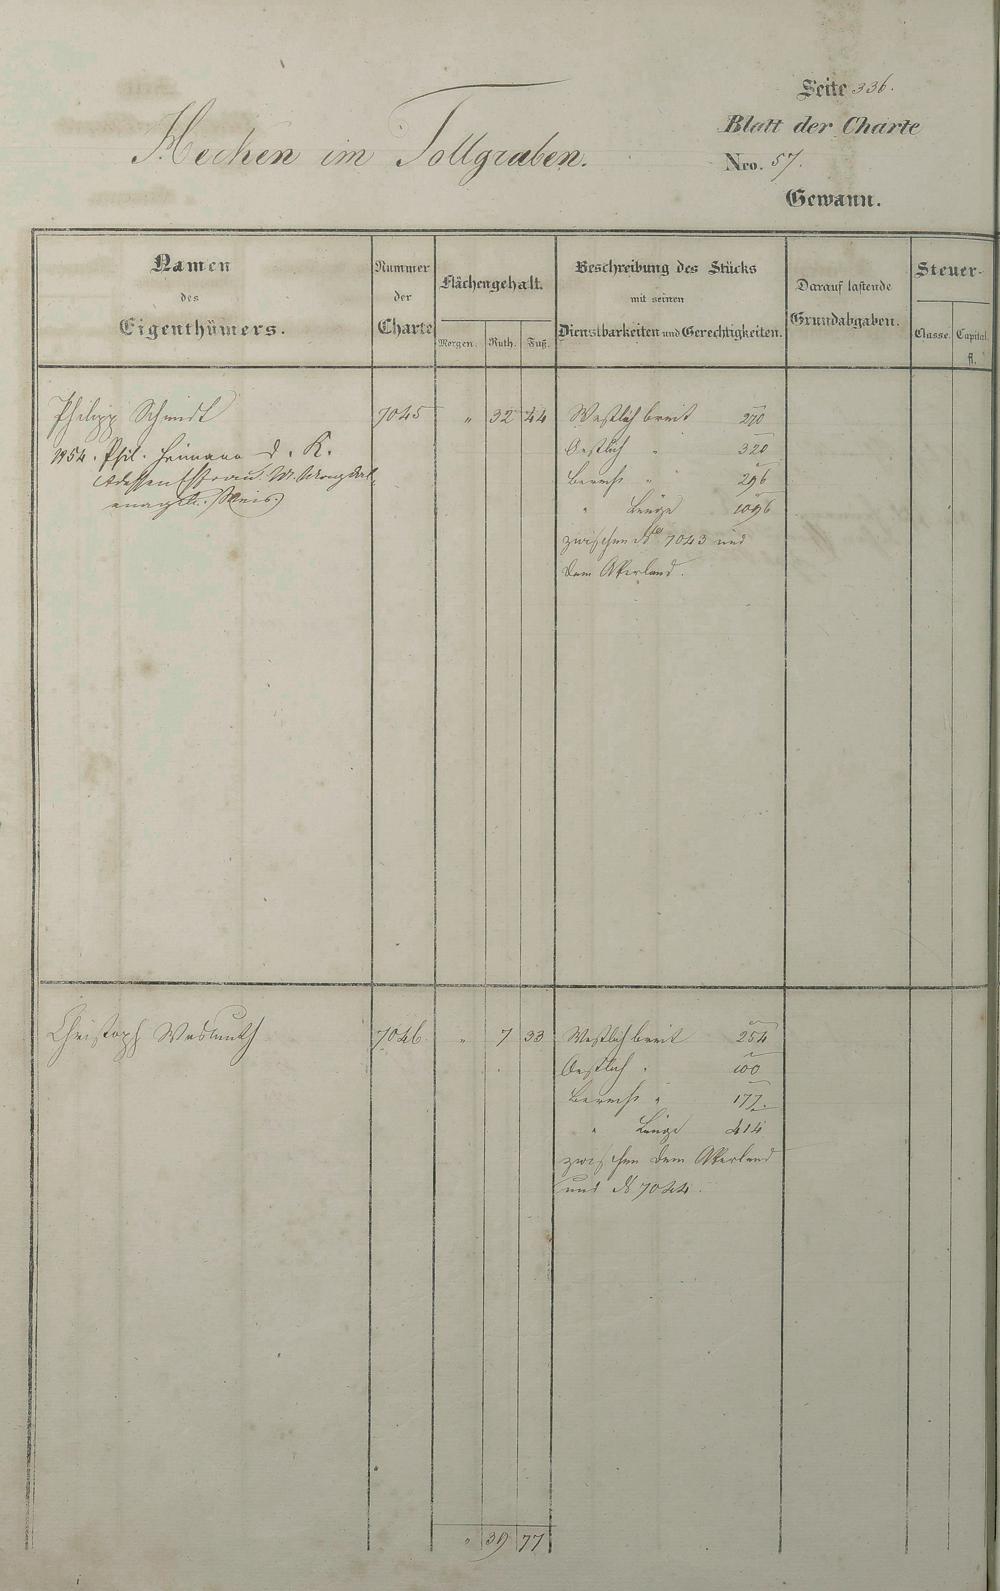 Seite 336.
Blatt der Charte
Nro. 57.
Gewann.
Hecken im Tollgraben.
Namen
des
Eigenthümers.
Nummer
der
Charte
Flächengehalt.
Morgen. Ruth. Fuß.
Beschreibung des Stücks
mit seinen
Dienstbarkeiten und Gerechtigkeiten.
Darauf lastende
Grundabgaben.
Steuer-
Classe. Capital.
fl.
Philipp Schmidt 7045 " 32 44 Westlich breit 270
1854. Phil. Heimann d. K. Oestlich " 320
Berech " 296
" Länge 1096
zwischen No 7043 und
dem Akerland.
Christoph Wasmuth 7046 " 7 33 Westlich breit 254
Oestlich " 100
Berech " 177.
" Länge 414
zwischen dem Akerland
und No 7044.
" 39 77